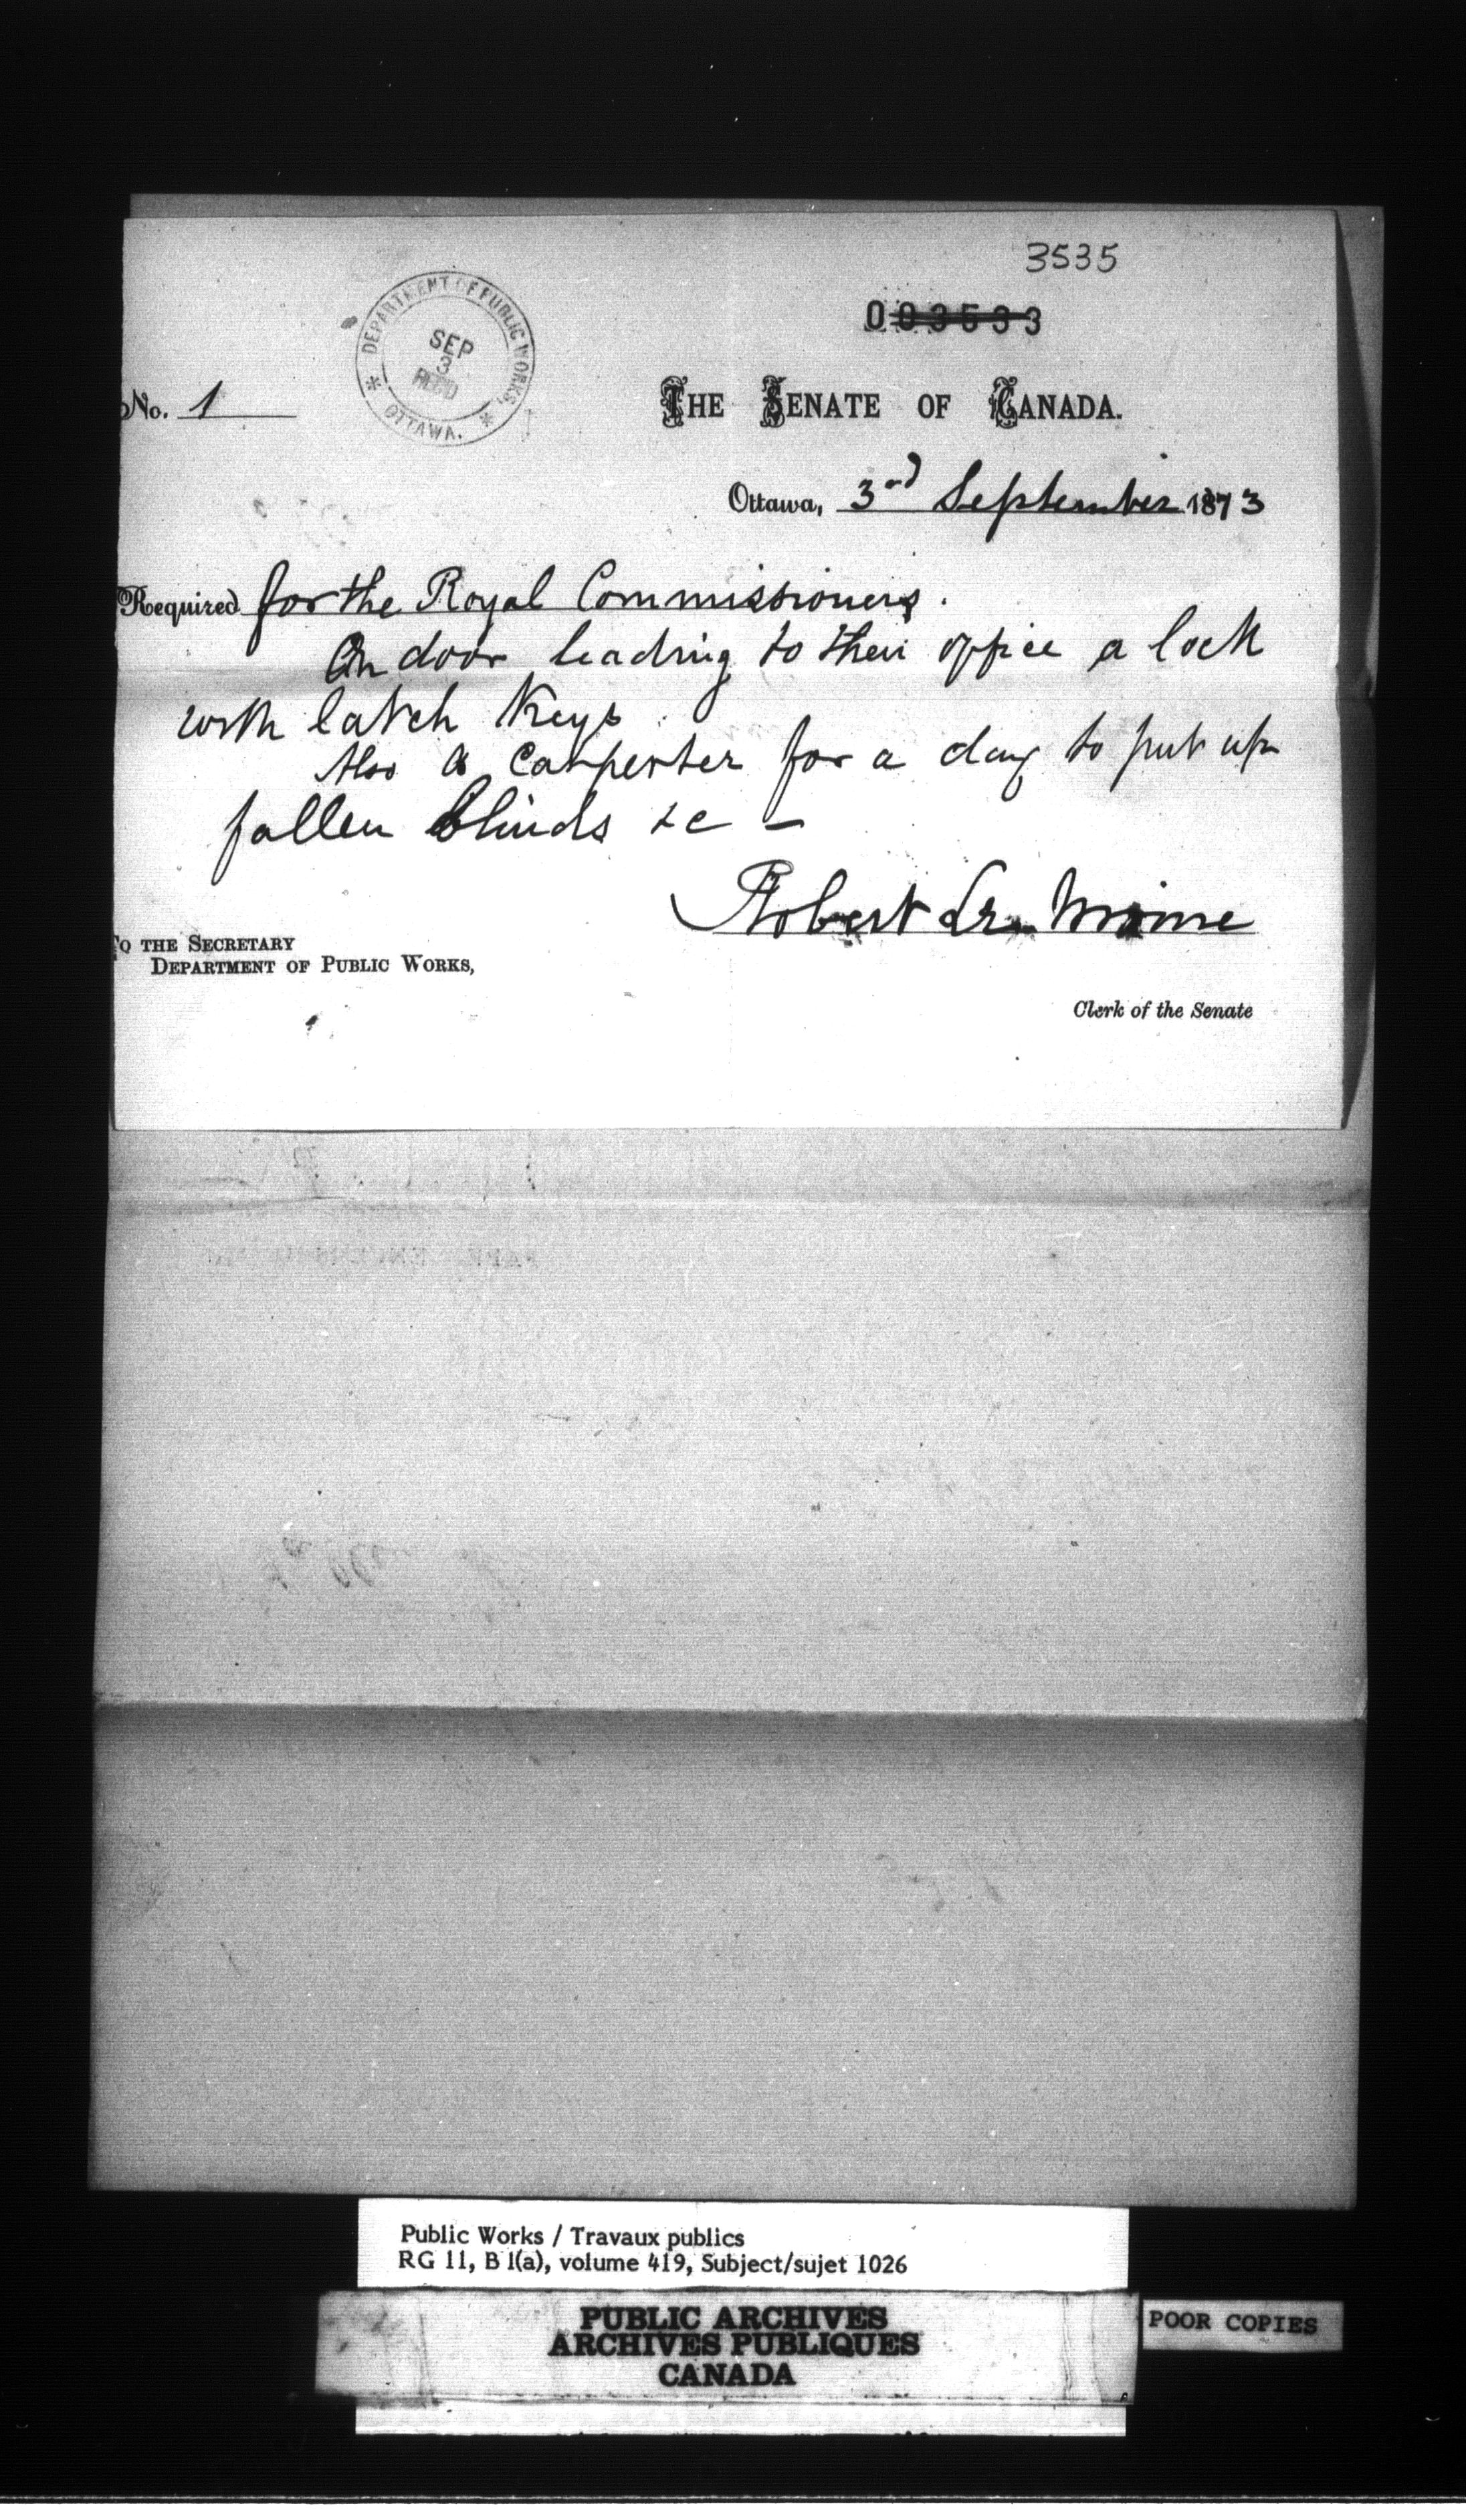 3535
003533
DEPARTMENT OF PUBLIC WORKS,
SEP
3
REC'D
* OTTAWA. *
No. 1
THE SENATE OF CANADA.
Ottawa, 3rd September 1873
Required for the Royal Commissioners.
On door leading to their office a lock
with latch keys.
Also a Carpenter for a day to put up
fallen blinds &c —
Robert Le Moine
TO THE SECRETARY
DEPARTMENT OF PUBLIC WORKS,
Clerk of the Senate
Public Works / Travaux publics
RG 11, B 1(a), volume 419, Subject/sujet 1026
PUBLIC ARCHIVES
ARCHIVES PUBLIQUES
CANADA
POOR COPIES